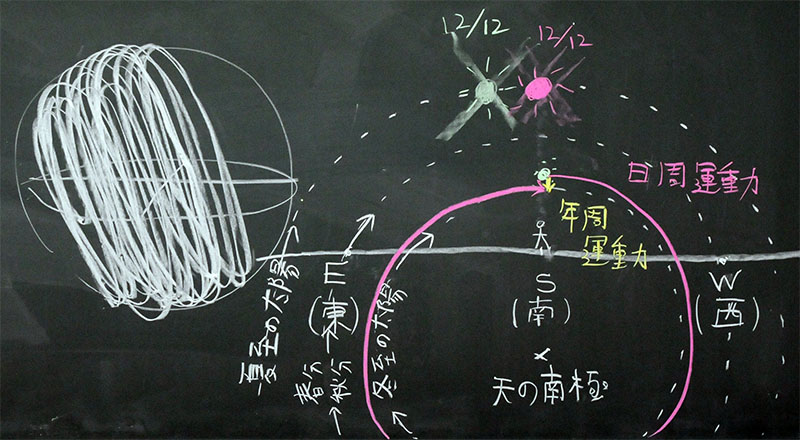 12/12
12/12
日周運動
年周
運動
夏至の太陽
E
(東)
春分
秋分
冬至の太陽
S
(南)
W
(西)
天の南極